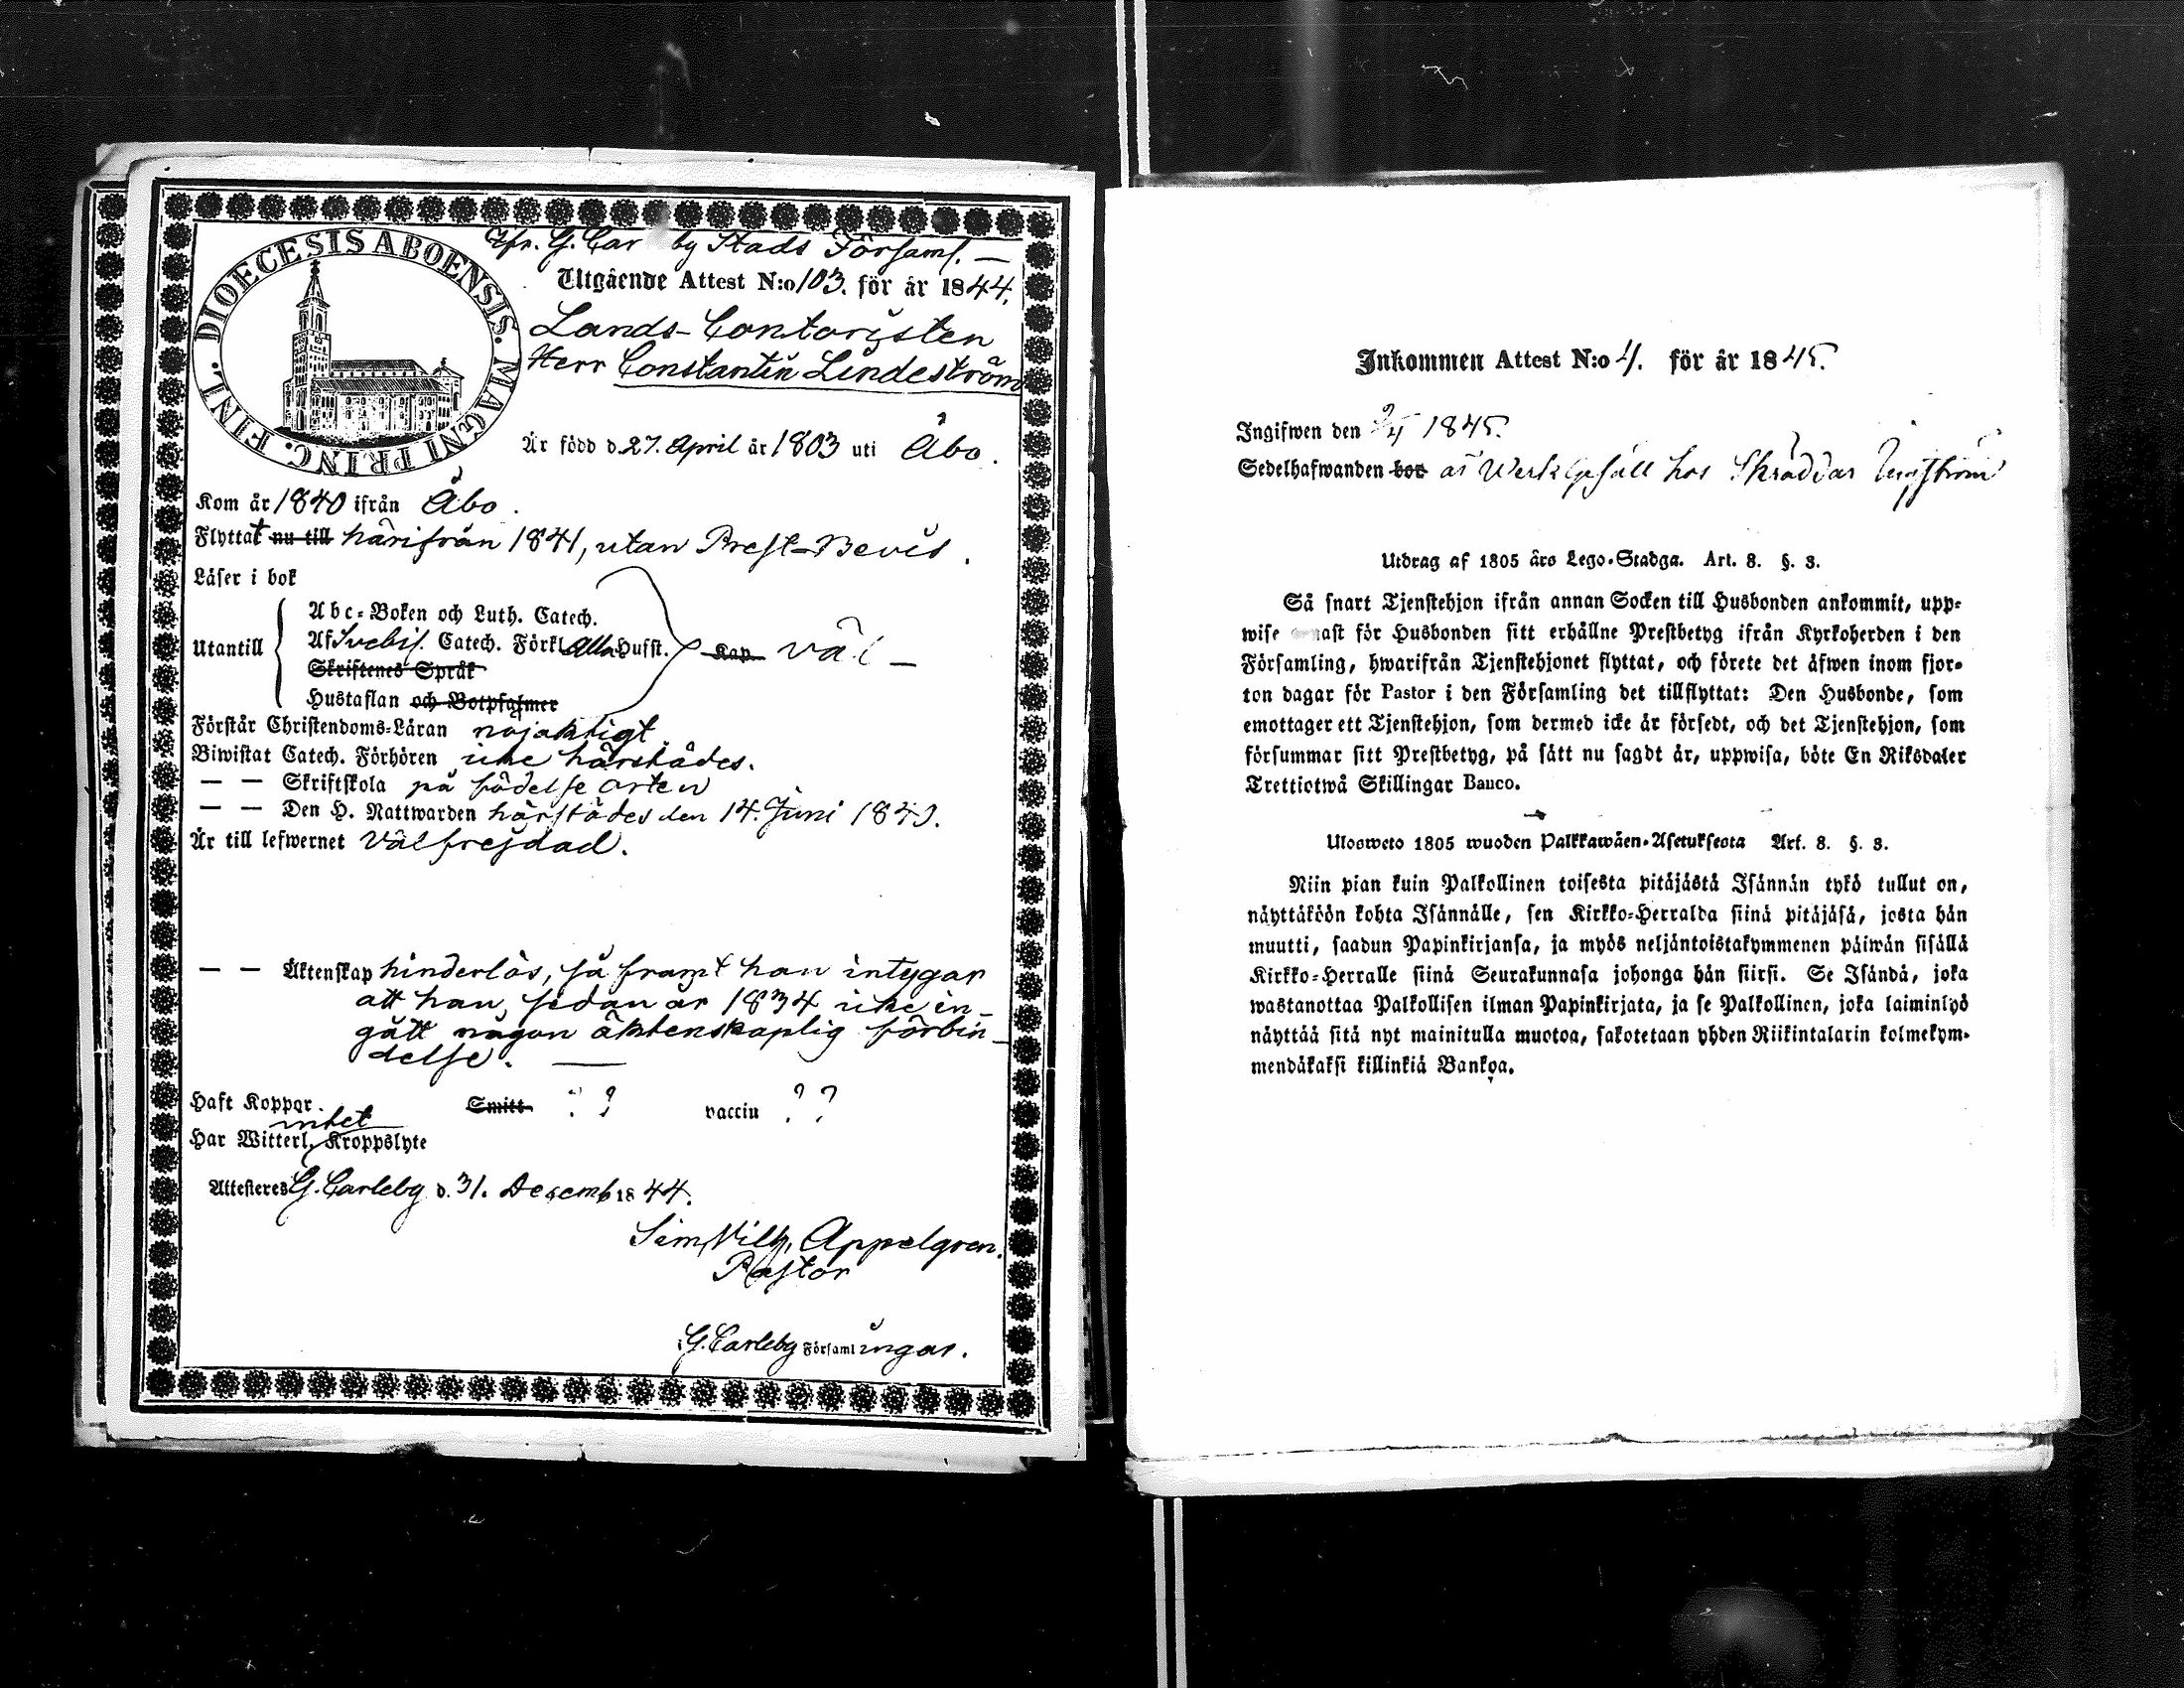 DIOECESIS ABOENSIS. MAGNI PRINC. FINL.
Ifr. G. Car by Stads Församl. —
Utgående Attest N:o 103. för år 1844.
Lands-Contoristen
Herr Constantin Lindeström
Är född d. 27. April år 1803 uti Åbo.
Kom år 1840 ifrån Åbo.
Flyttat nu till härifrån 1841, utan Prest-Bevis.
Läser i bok
Utantill
Abc-Boken och Luth. Catech.
Af Svebil. Catech. Förkl. alla Hufst. Kap väl —
Skriftenes Språk
Hustaflan och Botpsalmer
Förstår Christendoms-Läran nöjaktigt.
Biwistat Catech. Förhören icke härstädes.
— — Skriftskola på födelse orten
— — Den H. Nattwarden härstädes den 14. Juni 1840.
Är till lefwernet välfrejdad.
— — Äktenskap hinderlös, så framt han intygar
att han, sedan år 1834 icke in-
gått någon äktenskaplig förbin-
delse. —
Haft Koppor. Smitt ? ? vaccin ? ?
intet
Har Witterl. Kroppslyte
Attesteres G. Carleby d. 31. Decemb 1844.
Sim. Vilh. Appelgren.
Pastor
G. Carleby Församlingar.
Inkommen Attest N:o 4. för år 1845.
Ingifwen den 1845.
Sedelhafwanden bor är Werkgesäll hos Skräddar
Utdrag af 1805 års Lego-Stadga. Art. 8. §. 3.
Så snart Tjenstehjon ifrån annan Socken till Husbonden ankommit, upp-
wise för Husbonden sitt erhållne Prestbetyg ifrån Kyrkoherden i den
Församling, hwarifrån Tjenstehjonet flyttat, och förete det äfwen inom fjor-
ton dagar för Pastor i den Församling det tillflyttat: Den Husbonde, som
emottager ett Tjenstehjon, som dermed icke är försedt, och det Tjenstehjon, som
försummar sitt Prestbetyg, på sätt nu sagdt är, uppwisa, böte En Riksdaler
Trettiotwå Skillingar Banco.
Ulosweto 1805 wuoden Palkkawäen-Asetuksesta Art. 8. §. 3.
Niin pian kuin Palkollinen toisesta pitäjästä Isännän tykö tullut on,
näyttäköön kohta Isännälle, sen Kirkko-Herralda siinä pitäjäsä, josta hän
muutti, saadun Papinkirjansa, ja myös neljäntoistakymmenen päiwän sisällä
Kirkko-Herralle siinä Seurakunnasa johonga hän siirsi. Se Isändä, joka
wastanottaa Palkollisen ilman Papinkirjata, ja se Palkollinen, joka laiminlyö
näyttää sitä nyt mainitulla muotoa, sakotetaan yhden Riikintalarin kolmekym-
mendäkaksi killinkiä Bankoa.